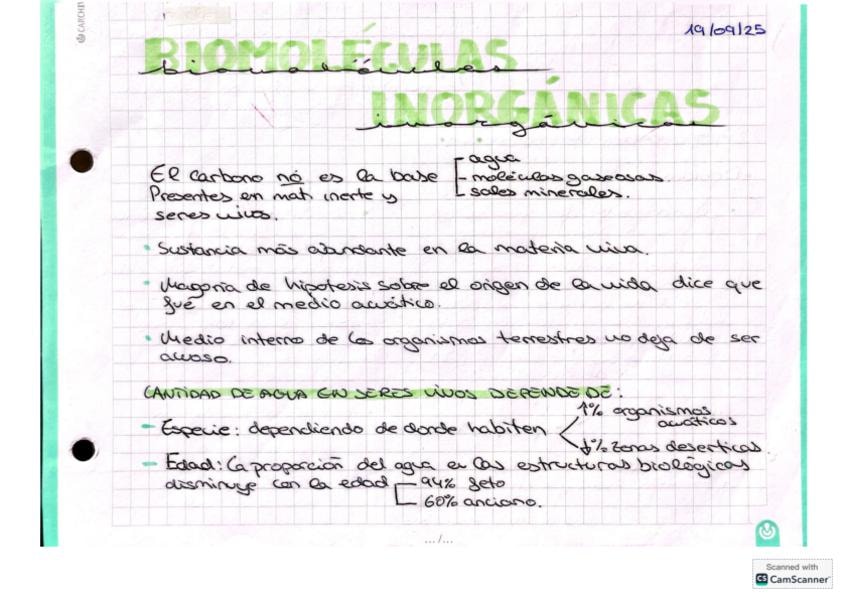 CARCHIV
19/09/25
BIOMOLÉCULAS
biomoléculas
INORGÁNICAS
inorgánicas
El carbono no es la base
agua
moléculas gaseosas.
sales minerales.
Presentes en mat. inerte y
seres vivos.
· Sustancia más abundante en la materia viva.
· Mayoría de hipotesis sobre el origen de la vida dice que
fué en el medio acuático.
· Medio interno de los organismos terrestres no deja de ser
acuoso.
CANTIDAD DE AGUA EN SERES VIVOS DEPENDE DE:
- Especie: dependiendo de donde habiten
↑% organismos
acuáticos
↓% zonas deserticas.
- Edad: la proporción del agua en las estructuras biológicas
disminuye con la edad
94% feto
60% anciano.
.../...
Scanned with
CS CamScanner